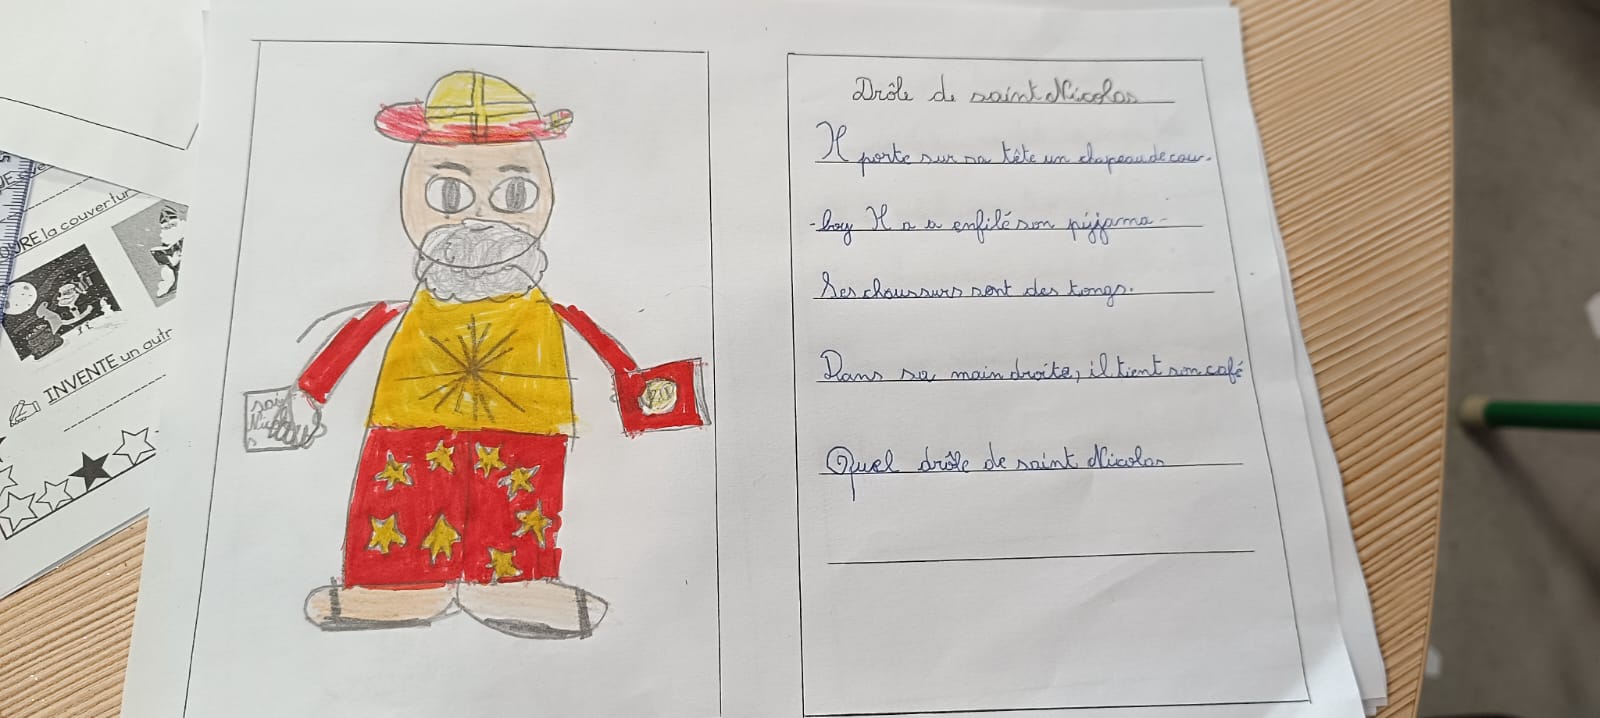 Drôle de saint Nicolas
Il porte sur sa tête un chapeau de cow-
-boy Il a a enfilé son pyjama
Ses chaussurs sont des tongs.
Dans sa main droite, il tient son café
Quel drôle de saint Nicolas
la couvertur
INVENTE un autr